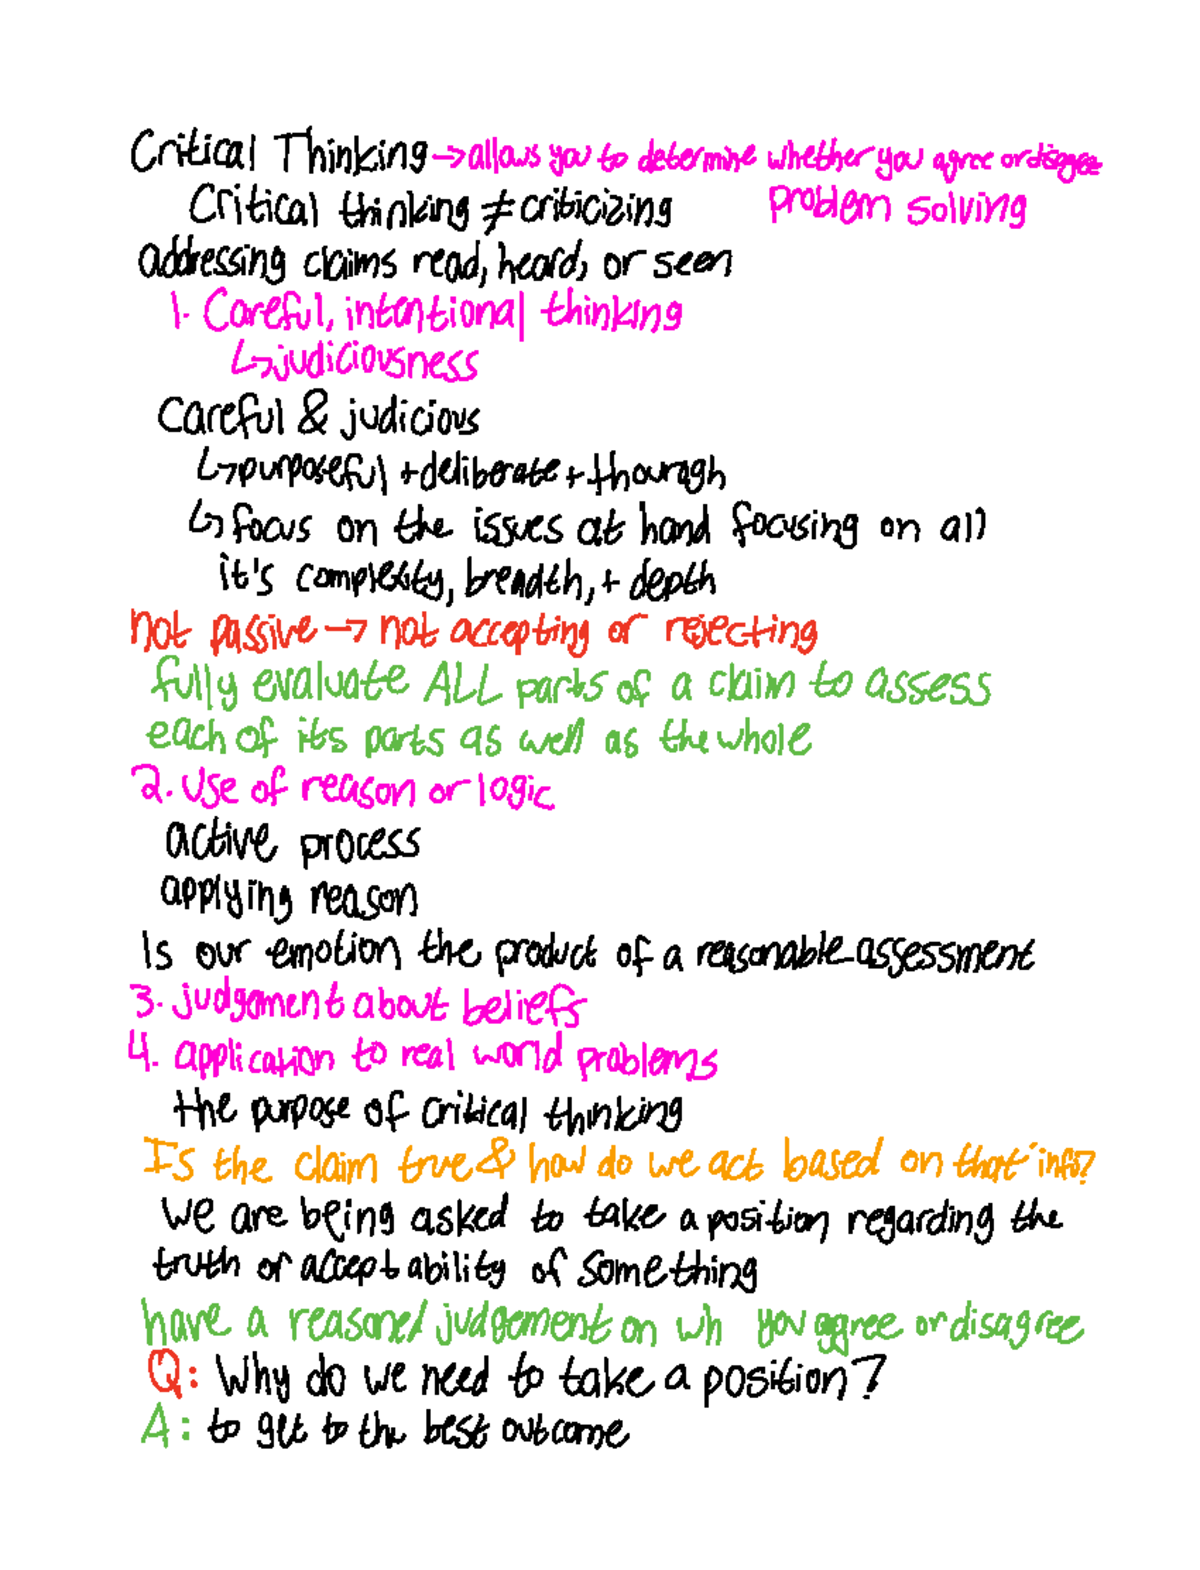 Critical Thinking → allows you to determine whether you agree or disagree
Critical thinking ≠ criticizing problem solving
addressing claims read, heard, or seen
1. Careful, intentional thinking
↳ judiciousness
Careful & judicious
↳ purposeful + deliberate + thouragh
↳ focus on the issues at hand focusing on all
it's complexity, breadth, + depth
not passive → not accepting or rejecting
fully evaluate ALL parts of a claim to assess
each of its parts as well as the whole
2. Use of reason or logic
active process
applying reason
Is our emotion the product of a reasonable assessment
3. judgement about beliefs
4. application to real world problems
the purpose of critical thinking
Is the claim true & how do we act based on that info?
We are being asked to take a position regarding the
truth or acceptability of something
have a reasoned judgement on wh you agree or disagree
Q: Why do we need to take a position?
A: to get to the best outcome